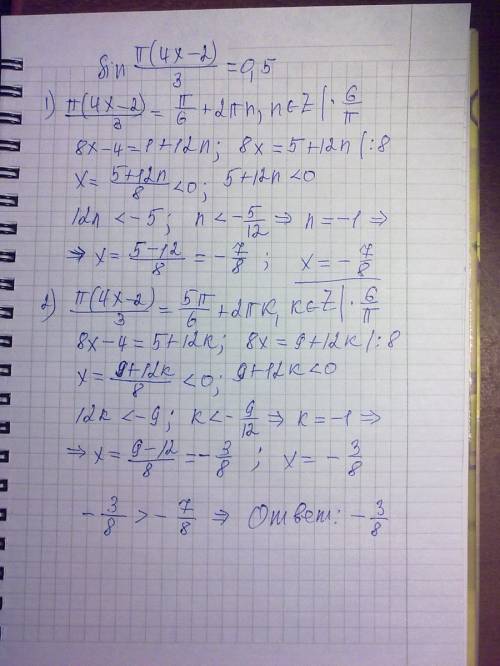 sin π(4x-2)/3 = 0,5
1) π(4x-2)/3 = π/6 + 2πn, n∈Z | · 6/π
8x-4=1+12n; 8x=5+12n |:8
x= (5+12n)/8 <0; 5+12n<0
12n<-5; n<-5/12 ⇒ n=-1 ⇒
⇒ x= (5-12)/8 = -7/8; x=-7/8
2) π(4x-2)/3 = 5π/6 + 2πк, к∈Z | · 6/π
8x-4=5+12к; 8x=9+12к |:8
x= (9+12к)/8 <0; 9+12к<0
12к<-9; к<-9/12 ⇒ к=-1 ⇒
⇒ x= (9-12)/8 = -3/8; x=-3/8
-3/8 > -7/8 ⇒ Ответ: -3/8